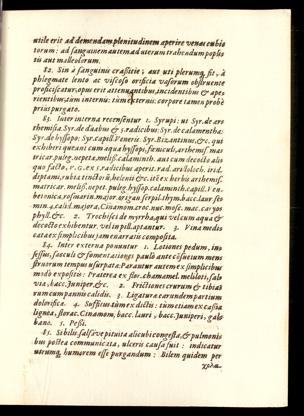 utile erit ad demendam plenitudinem aperire venas cubito
torum: ad sanguinem autem ad uterum trahendum poplitis
tis aut malleolorum.
82. Sin à sanguinis crassitie, aut uti plerumq, fit, à
phlegmate lento ac viscoso orificia vasorum obstruente
proficiscatur, opus erit attenuantibus, incidentibus & ape-
rientibus, tum internis: tum externis: corpore tamen probè
prius purgato.
83. Inter interna recensentur 1. Syrupi: ut Syr. de ar-
themisia, Syr. de duabus & 5. radicibus: Syr. de calamentha:
Syr. de hyssopo: Syr. capill. Veneris. Syr. Bizantinus, &c. qui
exhiberi queant cum aqua hyssopi, fœniculi, arthemis. mat
ricar. puleg. nepetæ, melis. calaminth. aut cum decocto ali
quo facto,
matricar. melis. nepet. puleg. hyssop. calaminth. capill. Ven.
betonica, rosmarin. major. origan serpil. thym. bacc. laur se-
min. 4. calid. major. a. Cinamom. croc. nuc. mosc. mac. caryo
phyll. &c. 2. Trochisci de myrrha, qui vel cum aqua &
decocto exhibentur, vel in pill. aptantur. 3. Vina medi-
cata ex simplicibus jam enarratis composita.
84. Inter externa ponuntur 1. Lotiones pedum, in-
sessus, sacculi & fomentationes paulo ante consuetum mens
struorum tempus usurpata: Parantur autem ex simplicibus
modo expositis: Praterea ex flor. chamamel. meliloti, sal-
via, bacc. juniper &c. 2. Frictiones crurum & tibia-
rum cum pannis calidis. 3. Ligatura earundem partium
dolorifica. 4. Suffitus tum ex dictis: tum etiam ex cassia
lignea, storac. Cinamom, bacc. lauri, bacc. Juniperi, galo
bano. 5. Pessi.
85. Si bilis, salsave pituita alicubi congesta, & pulmonis
bus postea communicata, ulceris causa fuit: indicatur
utrumq, humorem esse purgandum: Bilem quidem per